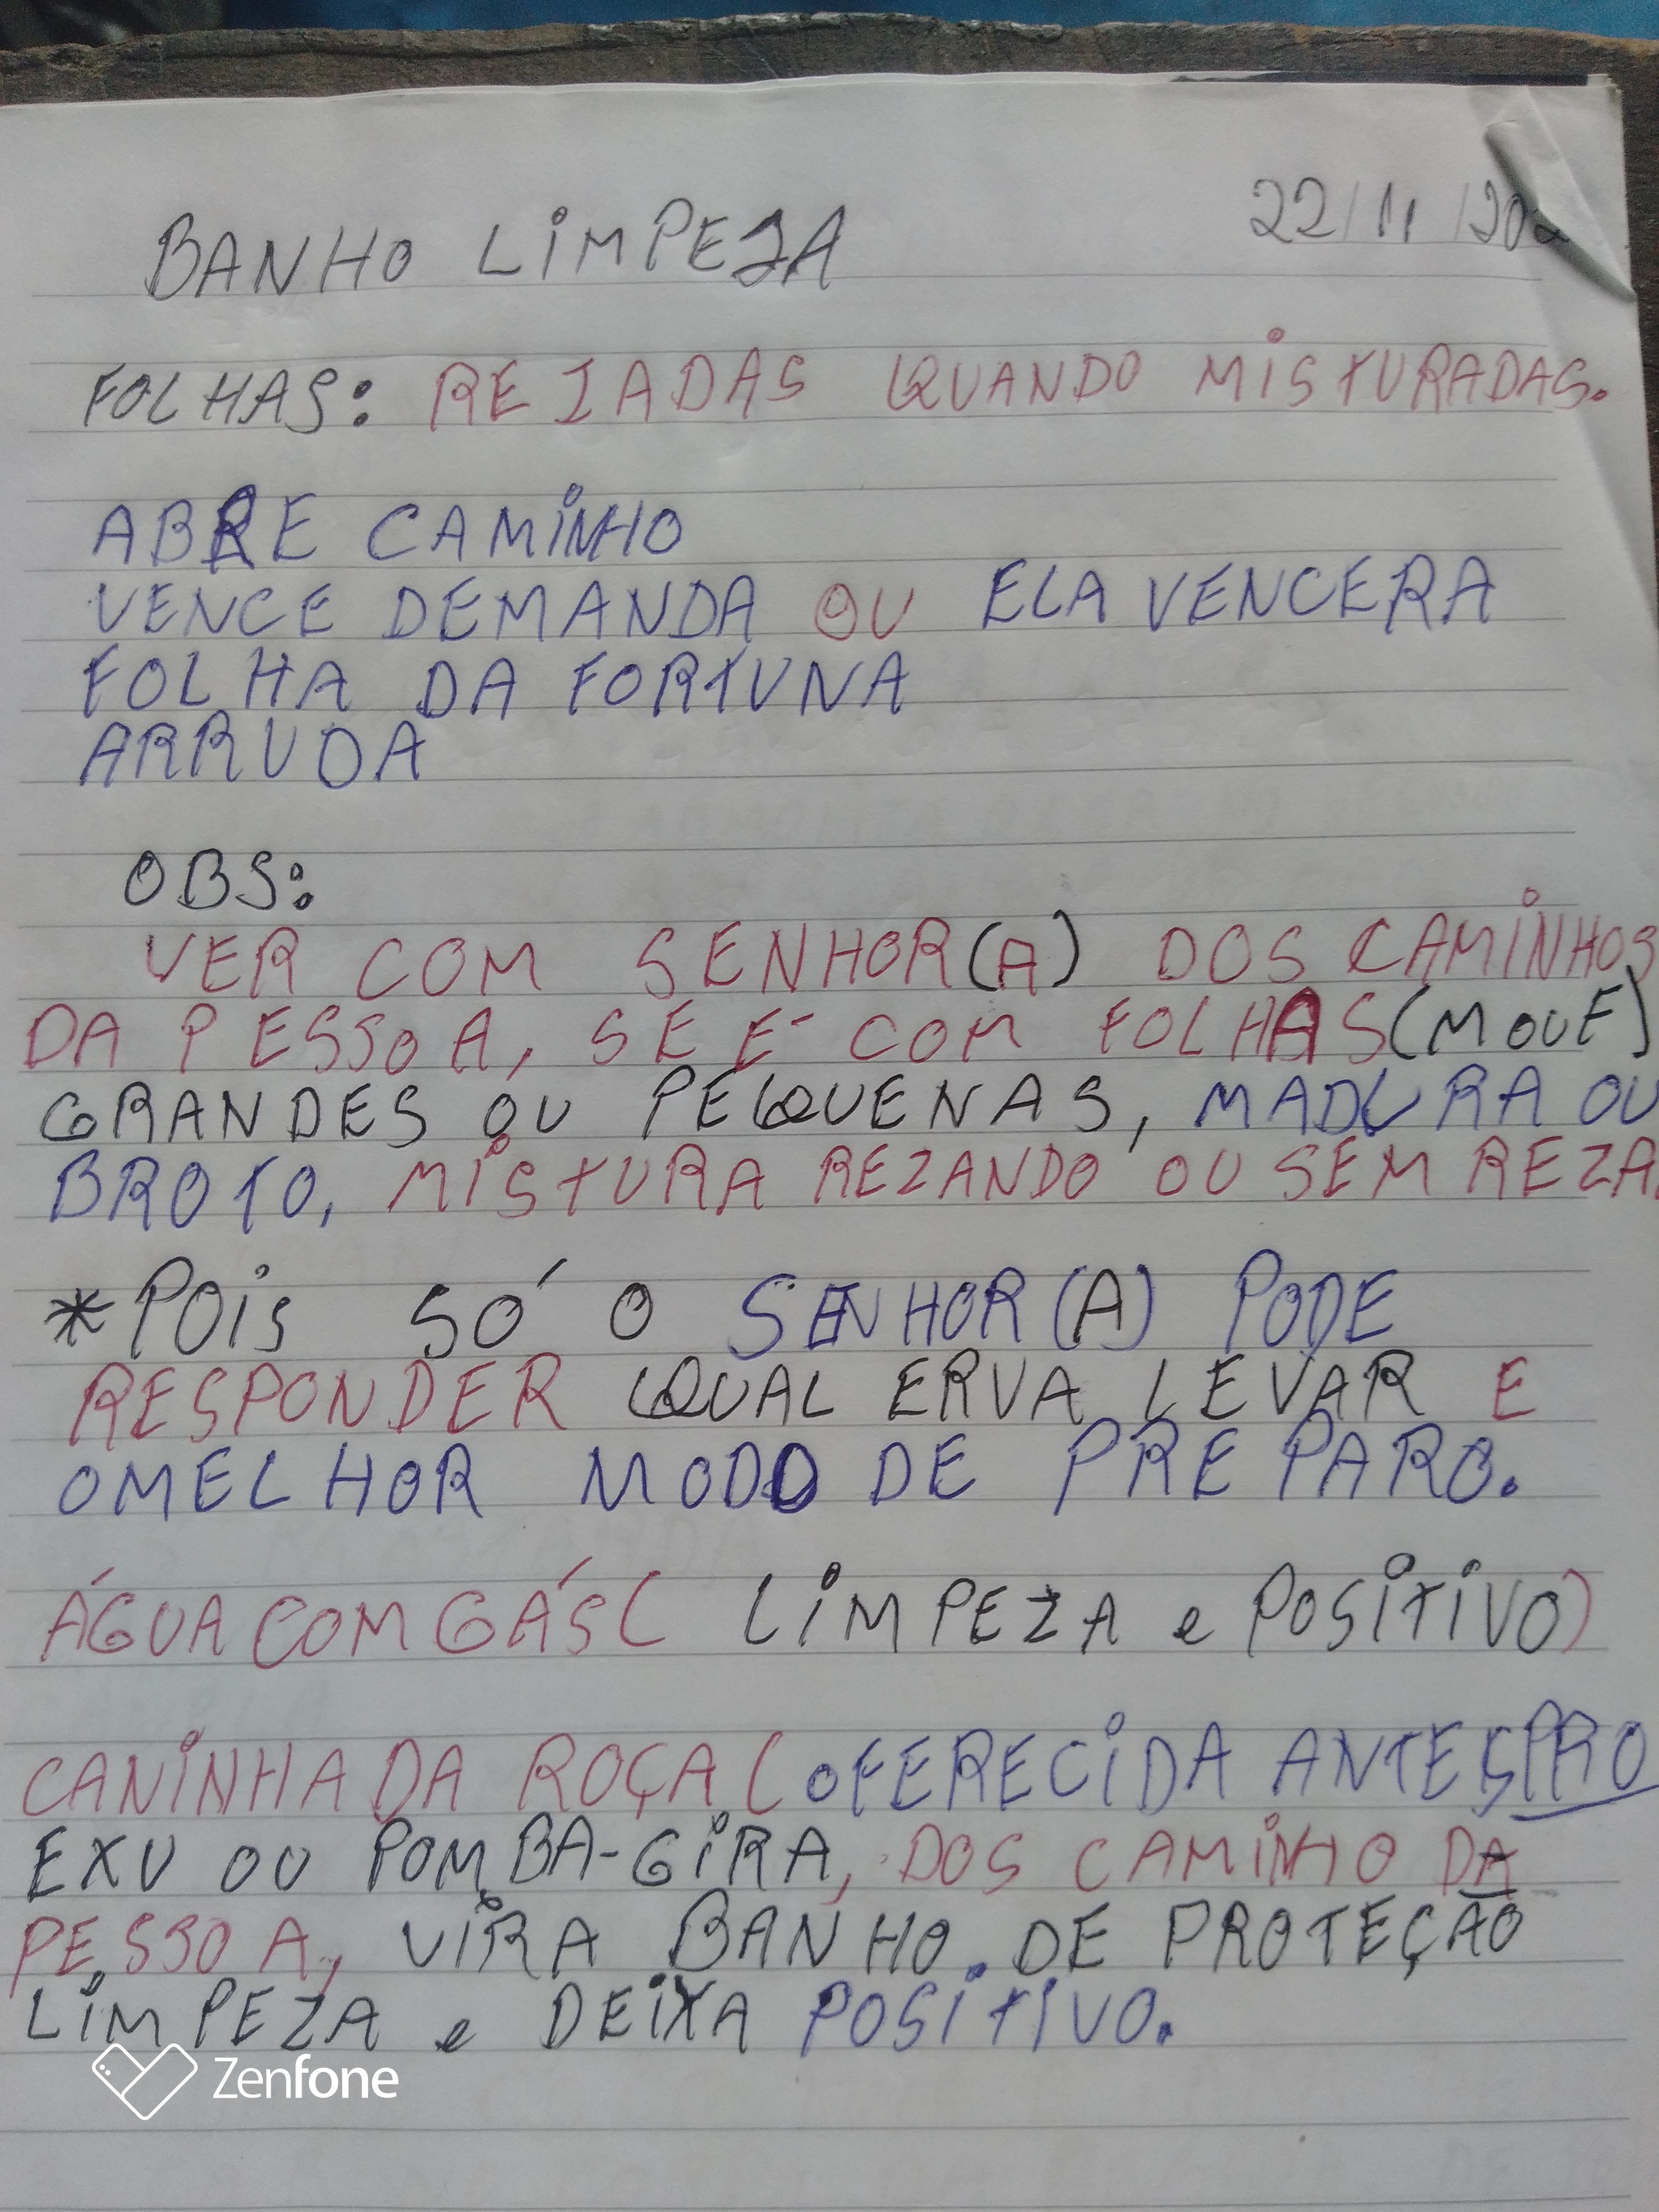 BANHO LIMPEZA 22/11/202
FOLHAS: REZADAS QUANDO MISTURADAS.
ABRE CAMINHO
VENCE DEMANDA OU ELA VENCERA
FOLHA DA FORTUNA
ARRUDA
OBS:
VER COM SENHOR(A) DOS CAMINHOS
DA PESSOA, SE É COM FOLHAS (MOLE)
GRANDES OU PEQUENAS, MADURA OU
BROTO, MISTURA REZANDO OU SEM REZA.
*POIS SÓ O SENHOR(A) PODE
RESPONDER QUAL ERVA LEVAR E
O MELHOR MODO DE PREPARO.
ÁGUA COM GÁS ( LIMPEZA e POSITIVO)
CANINHA DA ROÇA (OFERECIDA ANTES PRO
EXU OU POMBA-GIRA, DOS CAMINHO DA
PESSOA, VIRA BANHO. DE PROTEÇÃO
LIMPEZA e DEIXA POSITIVO.
Zenfone